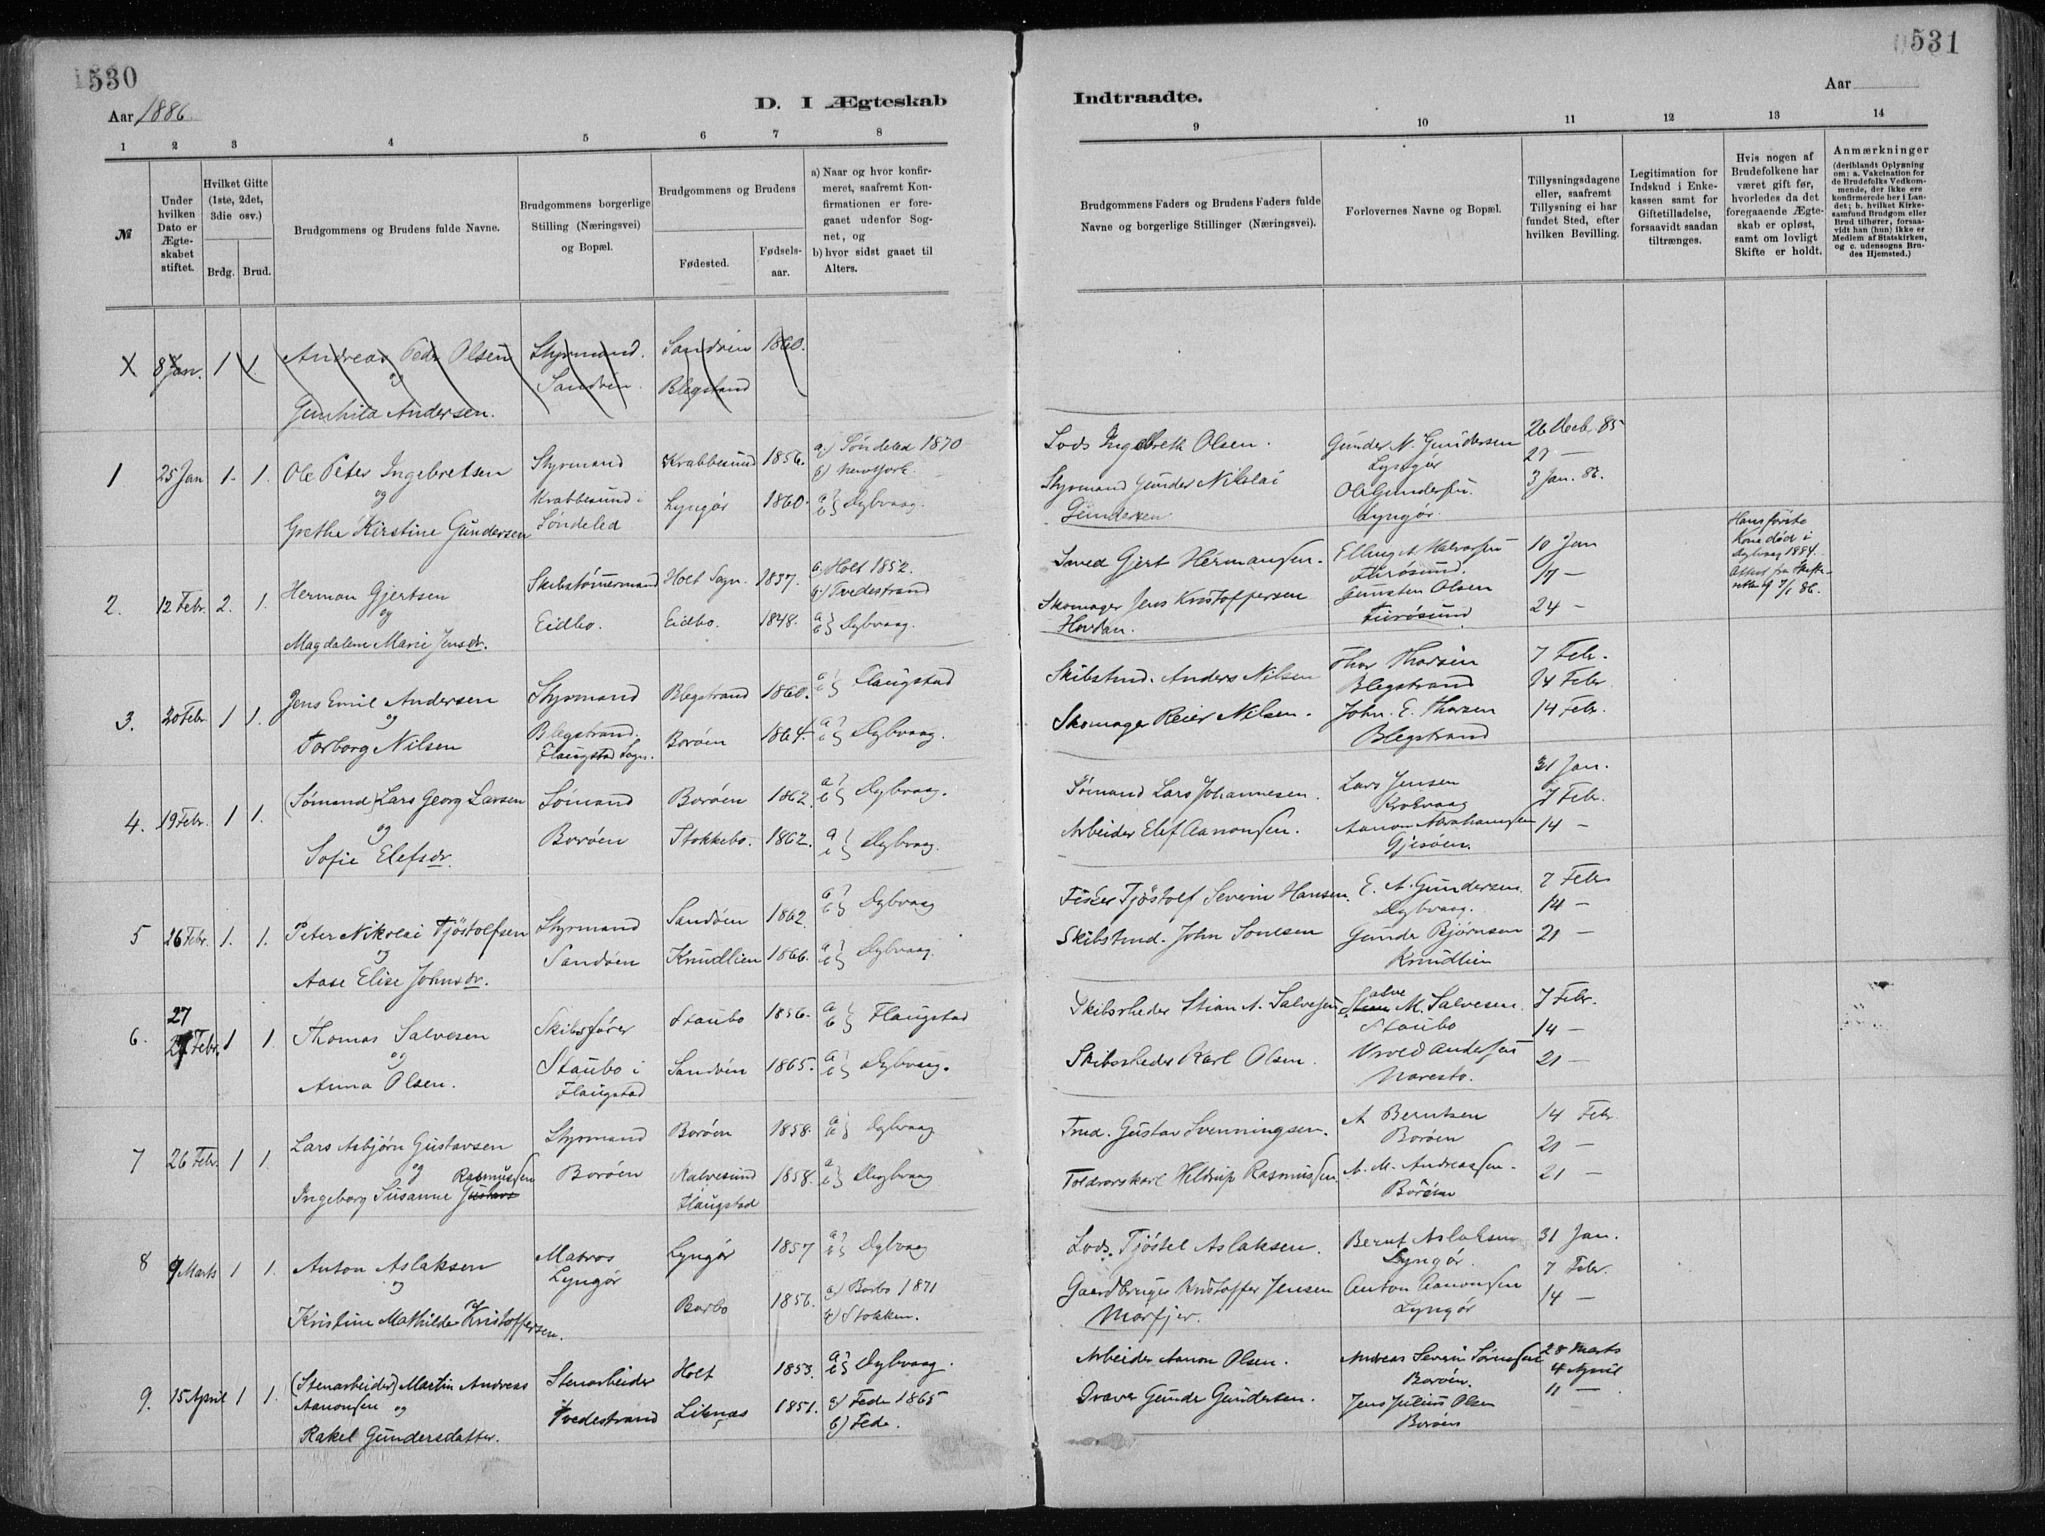 530
Aar 1886.
D. I Ægteskab
1 2 3 4 5 6 7 8
№
Under hvilken Dato er Ægteskabet stiftet.
Hvilket Gifte (1ste, 2det, 3die osv.)
Brdg. Brud.
Brudgommens og Brudens fulde Navne.
Brudgommens borgerlige Stilling (Næringsvei) og Bopæl.
Brudgommens og Brudens
Fødested.
Fødselsaar.
a) Naar og hvor konfirmeret, saafremt Konfirmationen er foregaaet udenfor Sognet, og
b) hvor sidst gaaet til Alters.
X 8 Jan. 1 1. Andreas Pedr Olsen Styrmand. Sandøen 1860.
og Sandøen. Blegstand
Gunhild Andersen.
1 25 Jan 1. 1. Ole Peter Ingebretsen Styrmand Krabbesund 1856. a) Søndeled 1870
b) Newyork.
og Krabbesund i Lyngør 1860. a b } Dybvaag.
Grethe Kirstine Gundersen Søndeled
2. 12 Febr. 2. 1. Herman Gjertsen Skibstømmermand Holt Sogn. 1837. a) Holt 1852.
b) Tvedestrand
og Eidbo. Eidbo. 1848. a b } Dybvaag.
Magdalene Marie Jensdr.
3. 20 Febr 1 1. Jens Emil Andersen Styrmand Blegstrand 1860. a b } Flaugstad
og Blegstrand.
Torborg Nilsen Flaugstad Sogn. Borøen 1864. a b } Dybvaag.
4. 19 Febr. 1 1. (Sømand) Lars Georg Larsen Sømand Borøen 1862. a b } Dybvaag.
og Borøen Stokkebo. 1862. a b } Dybvaag.
Sofie Elefsdr.
5 26 Febr. 1. 1. Peter Nikolai Tjöstolfsen Styrmand Sandøen 1862. a b } Dybvaag
og Sandøen Knudlien 1866. a b } Dybvaag.
Aase Elise Johnsdr.
27
6. Febr. 1 1. Thomas Salvesen Skibsfører Staubo 1856. a b } Flaugstad
og Staubo i Sandøen 1865. a b } Dybvaag.
Anna Olsen. Flaugstad
7 26 Febr. 1 1. Lars Asbjørn Gustavsen Styrmand Borøen 1858. a b } Dybvaag
og Rasmussen Borøen Kalvesund 1858. a b } Dybvaag
Ingeborg Susanne Gustavs Flaugstad
8 9 Marts 1 1. Anton Aslaksen Matros Lyngør 1857 a b } Dybvaag
og Lyngør Barbo 1856. a) Barbo 1871
b) Stokken.
Kristine Mathilde Kristoffersen.
9. 15 April 1 1. (Stenarbeider) Martin Andreas Stenarbeider Holt 1853. a b } Dybvaag.
Aanonsen og Tvedestrand Liknæs 1851. a) Fede 1865
b) Fede.
Rakel Gundersdatter.
531
Aar
Indtraadte.
9 10 11 12 13 14
Brudgommens Faders og Brudens Faders fulde Navne og borgerlige Stillinger (Næringsvei).
Forlovernes Navne og Bopæl.
Tillysningsdagene eller, saafremt Tillysning ei har fundet Sted, efter hvilken Bevilling.
Legitimation for Indskud i Enkekassen samt for Giftetilladelse, forsaavidt saadan tiltrænges.
Hvis nogen af Brudefolkene har været gift før, hvorledes da det foregaaende Ægteskab er opløst, samt om lovligt Skifte er holdt.
Anmærkninger
(deriblandt Oplysning om: a. Vakcination for de Brudefolks Vedkommende, der ikke ere konfirmerede her i Landet; b. hvilket Kirkesamfund Brudgom eller Brud tilhører, forsaavidt han (hun) ikke er Medlem af Statskirken, og c. udensogns Brudes Hjemsted.)
Lods Ingebreth Olsen. Gunder N. Gundersen 26 Decb. 85
Lyngør 27 —
Styrmand Gunder Nikolai Ole Gundersen 3 Jan. 86.
Gundersen Lyngør.
Smed Gjert Hermansen. Elling A. Halvorsen 10 Jan Hans første Kone død i Dybvaag 1884. Attest fra Skifteretten af 7/1 86.
Furøsund. 17 —
Skomager Jens Kristoffersen Gunsten Olsen 24 —
Hovdan. Furøsund
Skibstmd. Anders Nilsen Thor Thorsen 7 Feb.
Blegstrand 14 Febr
Skomager Reier Nilsen. John. E. Thorsen 14 Febr.
Blegstrand
Sømand Lars Johannesen. Lars Jensen 31 Jan.
Krokvaag 7 Febr.
Arbeider Elef Aanonsen. Aanon Abrahamsen 14 —
Gjesøen.
Fisker Tjöstolf Severin Hansen. E. A. Gundersen. 7 Febr
Dybvaag. 14 —
Skibstmd. John Tonesen Gunder Bjørnsen 21 —
Knudlien
Skibsrheder Stian A. Salvesen Salve M. Salvesen. 7 Febr.
Staubo 14 —
Skibsrheder Karl Olsen. Andersen 21 —
Naresto.
Tmd. Gustav Svenningsen. A Berntsen 14 Febr
Borøen 21 —
Toldrorskarl Heldrup Rasmussen. A. M. Andreassen. 21 —
Borøen
Lods. Tjöstel Aslaksen. Bernt Aslaksen 31 Jan.
Lyngør. 7 Febr.
Gaardbruger Kristoffer Jensen Anton Aanonsen 14 —
Marfjer. Lyngør
Arbeider Aanon Olsen. Andreas Severin Sørensen 28 Marts
Borøen. 4 April
Dræver Gunder Gundersen. Jens Julius Olsen 11 —
Borøen